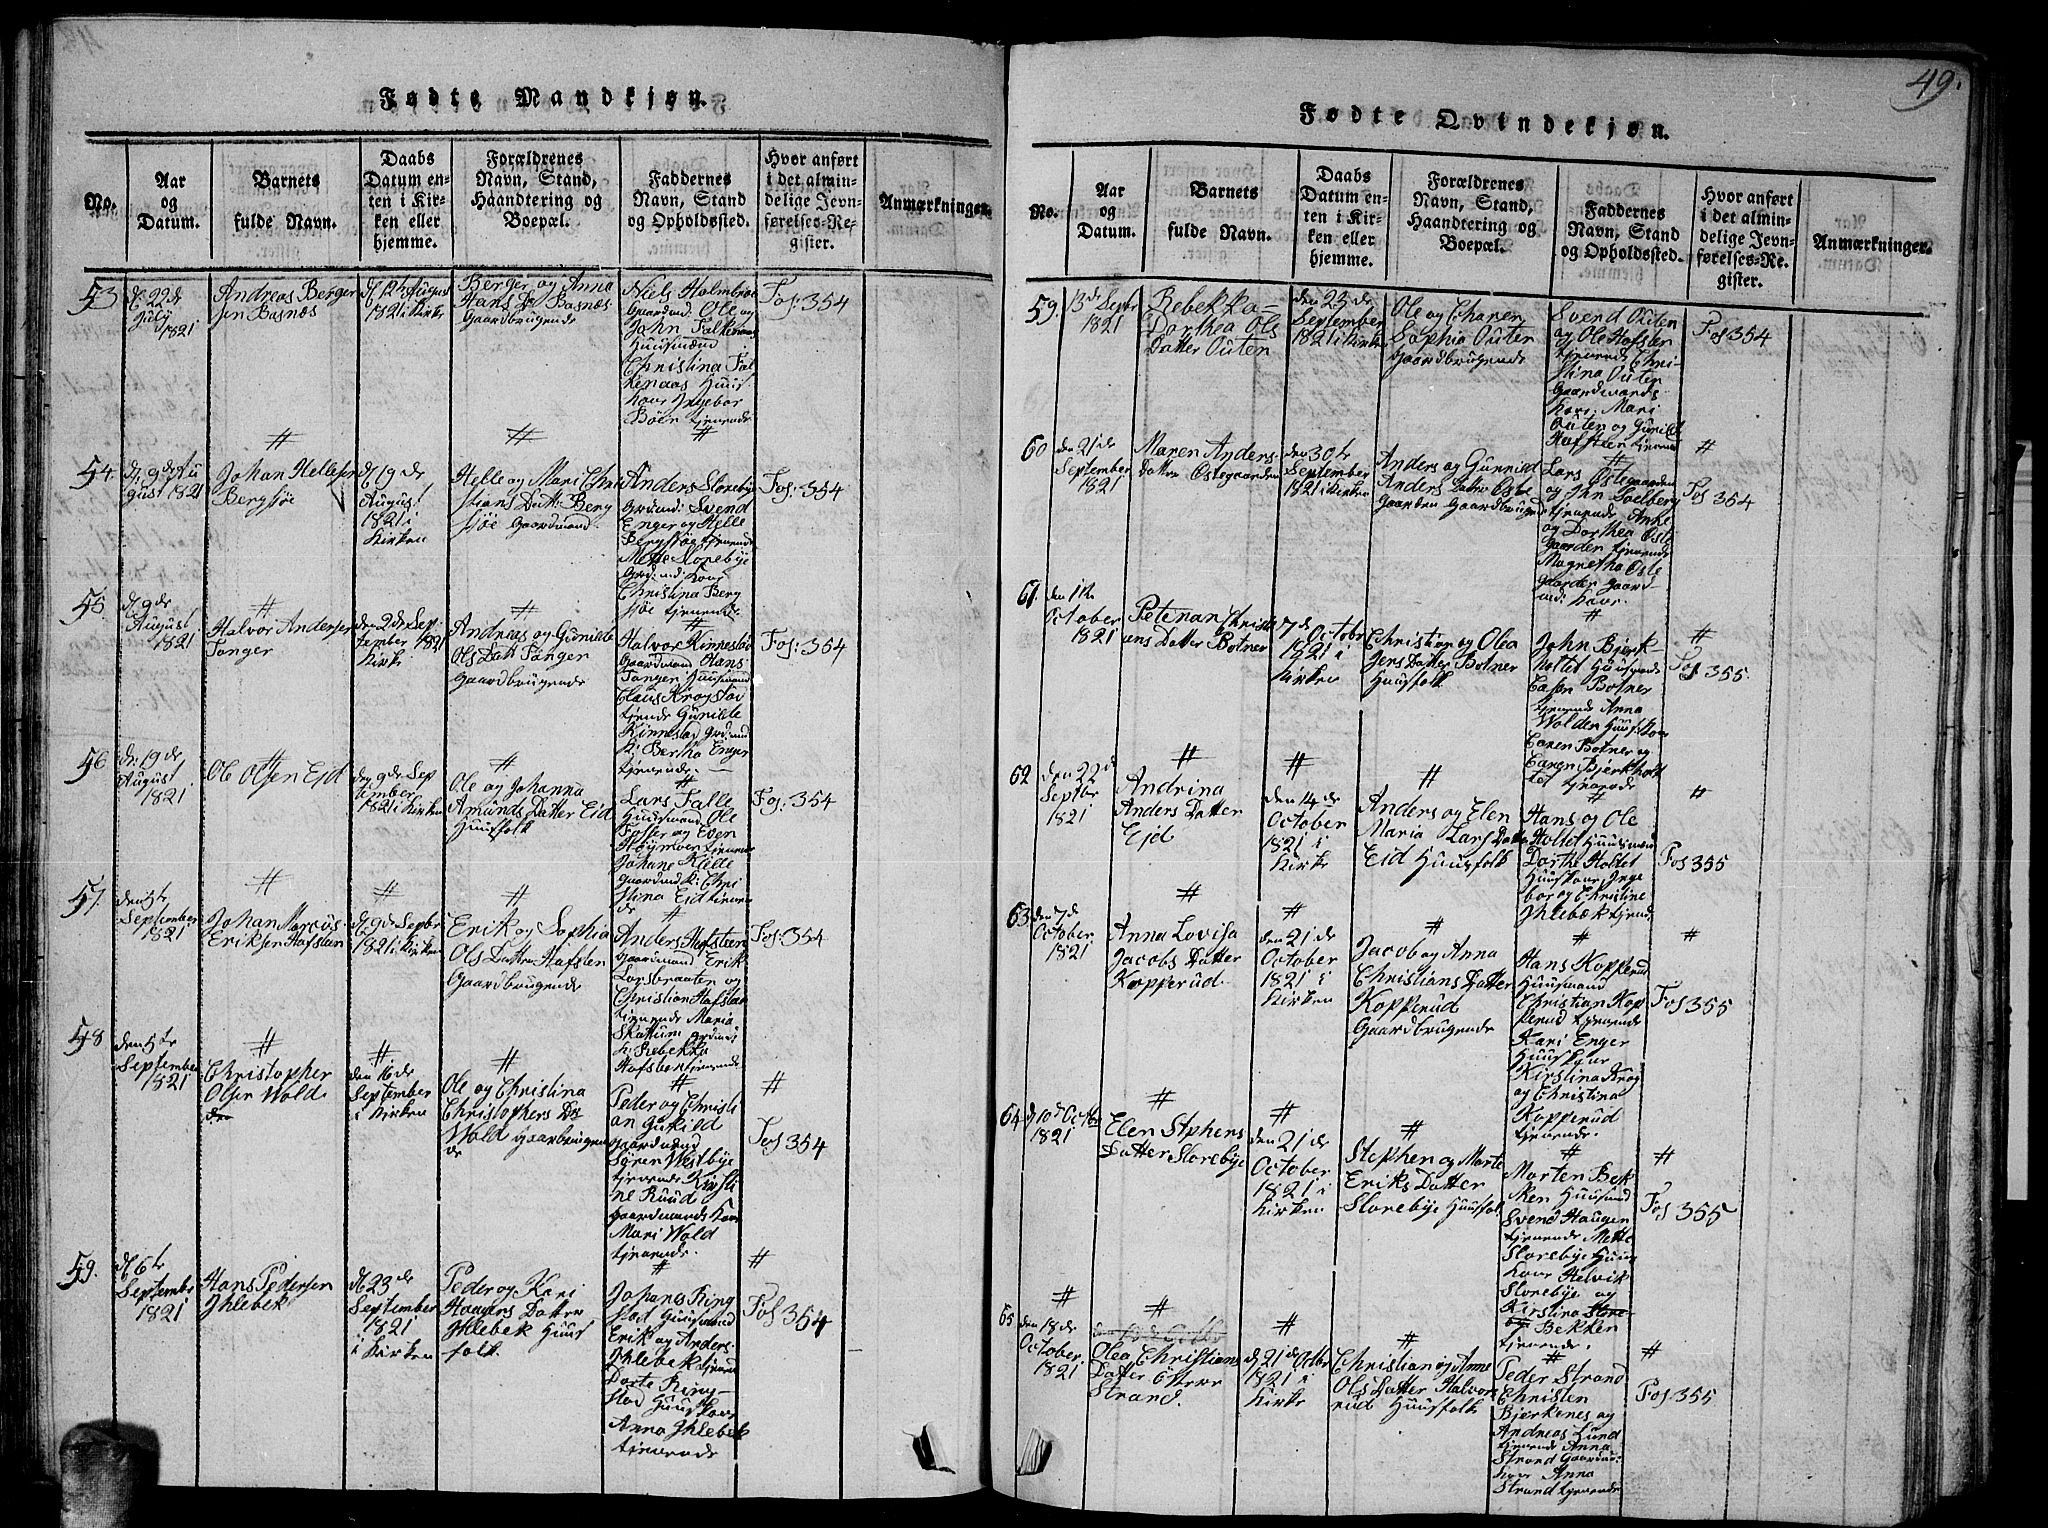 49.
Fødte Mandkjøn.
No.
Aar
og
Datum.
Barnets
fulde Navn.
Daabs
Datum en-
ten i Kir-
ken eller
hjemme.
Forældrenes
Navn, Stand,
Haandtering og
Boepæl.
Faddernes
Navn, Stand
og Opholdssted.
Hvor anført
i det almin-
delige Jevn-
førelses-Re-
gister.
Anmærkninger.
53
d: 22de
July
1821
Andreas Berger
sen Basnæs
d. 12te August
1821 i Kirken
Berger og Anna
Hans Dr Basnæs
Gaardbrugende
Niels Holmbroe
Gaardmd: Ole og
John Falkenaas
Huusmænd
Christina Fal
kenaas Huus
kone Ingebor
Böen tjenende
Fos: 354
54.
d. 9de Au
gust 1821
Johan Hellesen
Bergsøe
d. 19de
August
1821 i
Kirken
Helle og Mari Chri
stians Datt: Berg
søe Gaardmand
Anders Slorebye
Grdmd: Svend
Enger og Helle
Bergsøe tjenende
Mette Slorebye
Grd:md: Kone
Christina Berg
søe tjenende
Fos: 354
55.
d. 9de
August
1821
Halvor Andersen
Tanger
den 2de Sep
tember 1821
Kirke
Andreas og Gunilde
Ols Datt Tanger
Gaardbrugende
Halvor Kinnestad
Gaardmand Hans
Tanger Huusmand
Claus Krogstad
tjende Gunilde
Kinnestad Grd:md
K: Bertha Enger
tjenende
Fos: 354
56
d: 19de
August
1821
Ole Olsen Eid
den 9de Sep
tember
1821 i Kirken
Ole og Johanna
Amunds Datter Eid
Huusfolk
Lars Falle
Huusmand Ole
Fosser og Even
Höymoen tjenen
Johane Kielle
Gaardmd K: Chri
stina Eid tjenen
de
Fos: 354
57.
den 5te
September
1821
Johan Marcus
Eriksen Hafsteen
d. 9de Septbr
1821 i Kirken
Erik og Sophia
Ols Datter Hafsten
Gaardbrugende
Anders Hafsteen
Gaardmand Erik
Lorsbraaten og
Christian Hafsteen
tjenende Maria
Skattum Grdmd:
K: Rebekka
Hafsten tjenende
Fos: 354
58
den 5te
September
1821
Christopher
Olsen Wold
den 16de
September
i Kirken
Ole og Christina
Christophers Dr
Wold Gaarbrugen
de
Peder og Christi
an Guskild
Gaardmænd
Søren Westbye
tjenende Kirsti
ne Ruud
Gaardmands Kone
Mari Wold
tjenende.
Fos 354
59.
d. 6te
September
1821
Hans Pedersen
Ihlebek
d. 23de
September
1821
i Kirken
Peder og Kari
Haagens Datter
Ihlebek Huus
folk.
Johanes Ring
stad Huusmand
Erik og Anders
Ihlebek tjenend
Dorte Ring-
stad Huuskone
Anna Ihlebek
tjenende
Fos 354
Fødte Qvindekjøn.
No.
Aar
og
Datum.
Barnets
fulde Navn.
Daabs
Datum en-
ten i Kir-
ken eller
hjemme.
Forældrenes
Navn, Stand,
Haandtering og
Boepæl.
Faddernes
Navn, Stand
og Opholdssted.
Hvor anført
i det almin-
delige Jevn-
førelses-Re-
gister.
Anmærkninger.
59.
13de Septbr
1821
Rebekka
Dorthea Ols
Datter Outen
den 23de
September
1821 i Kirken
Ole og Charen
Sophia Outen
Gaardbrugende
Svend Outen
og Ole Hafsten
tjenende Chri-
stina Outen
Gaardmands
Kone: Mari
Outen og Gunild
Hafsteen tjenend
Fos 354
60
den 21de
September
1821
Maren Anders
Datter Östegaarden
den 30te
September
1821 i Kirken
Anders og Gunnild
Anders Datter Öste
Gaarden Gaardbrugend
Lars Östegaarden
og Jhn Solberg
tjenende Anke
og Dorthea Öste
Gaarden tjenende
Magretha Öste
Gaarden Gaard
md: Kone.
Fos 354
61.
den 1te
October
1821
Petenan Christi
ans Datter Botner
7de October
1821 i
Kirken
Christian og Olea
Jens Datter Botner
Huusfolk
John Bjerk-
holtet Huusmand
Casen Botner
tjenende Anna
Wolden Huuskone
Caren Botner og
Caren Bjerkholt
tet tjenende
Fos 355.
62
den 22de
Septbr
1821
Andrina
Anders Datter
Ejd
den 14de
October
1821 i
Kirke
Anders og Elen
Maria Lars Datter
Eid Huusfolk
Hans og Ole
Holtet Huusmænd
Dorthe Holtet
Huuskone Inge
bor og Christine
Ihlebæk tjenend
Fos 355
63
den 7de
October
1821
Anna Lovisa
Jacobs Datter
Kopperud.
den 21de
October
1821 i
Kirken
Jacob og Anna
Christians Datter
Kopperud
Gaardbrugende
Hans Kopperud
Huusmand
Christian Kop
perud tjenende
Kari Enger
Huuskone
Kirstina Krog
og Christina
Kopperud
tjenende.
Fos 355
64
d 10de Octbr
1821
Elen Stphens
Datter Slorebye
den 21de
October
1821 i
Kirken
Stephen og Marte
Eriks Datter
Slorebye Huusfolk
Morten Bek
ken Huusmand
Svend Haugen
tjenende Mette
Slorebye Huus
Kone Helvik
Slorebye og
Kirstina Slore-
bye Bekken
tjenende.
Fos 355
65
den 18de
October
1821
Olea Christians
Datter Östere
Strand.
d 21de Octbr
1821 i
Kirke
Christian og Anne
Ols Datter Halvor
rud Huusfolk
Peder Strand
Christen
Bjerkenes og
Andreas Lund
tjenende Anna
Strand Gaardm:
Kone Anna
Strand tjenende
Fos 355